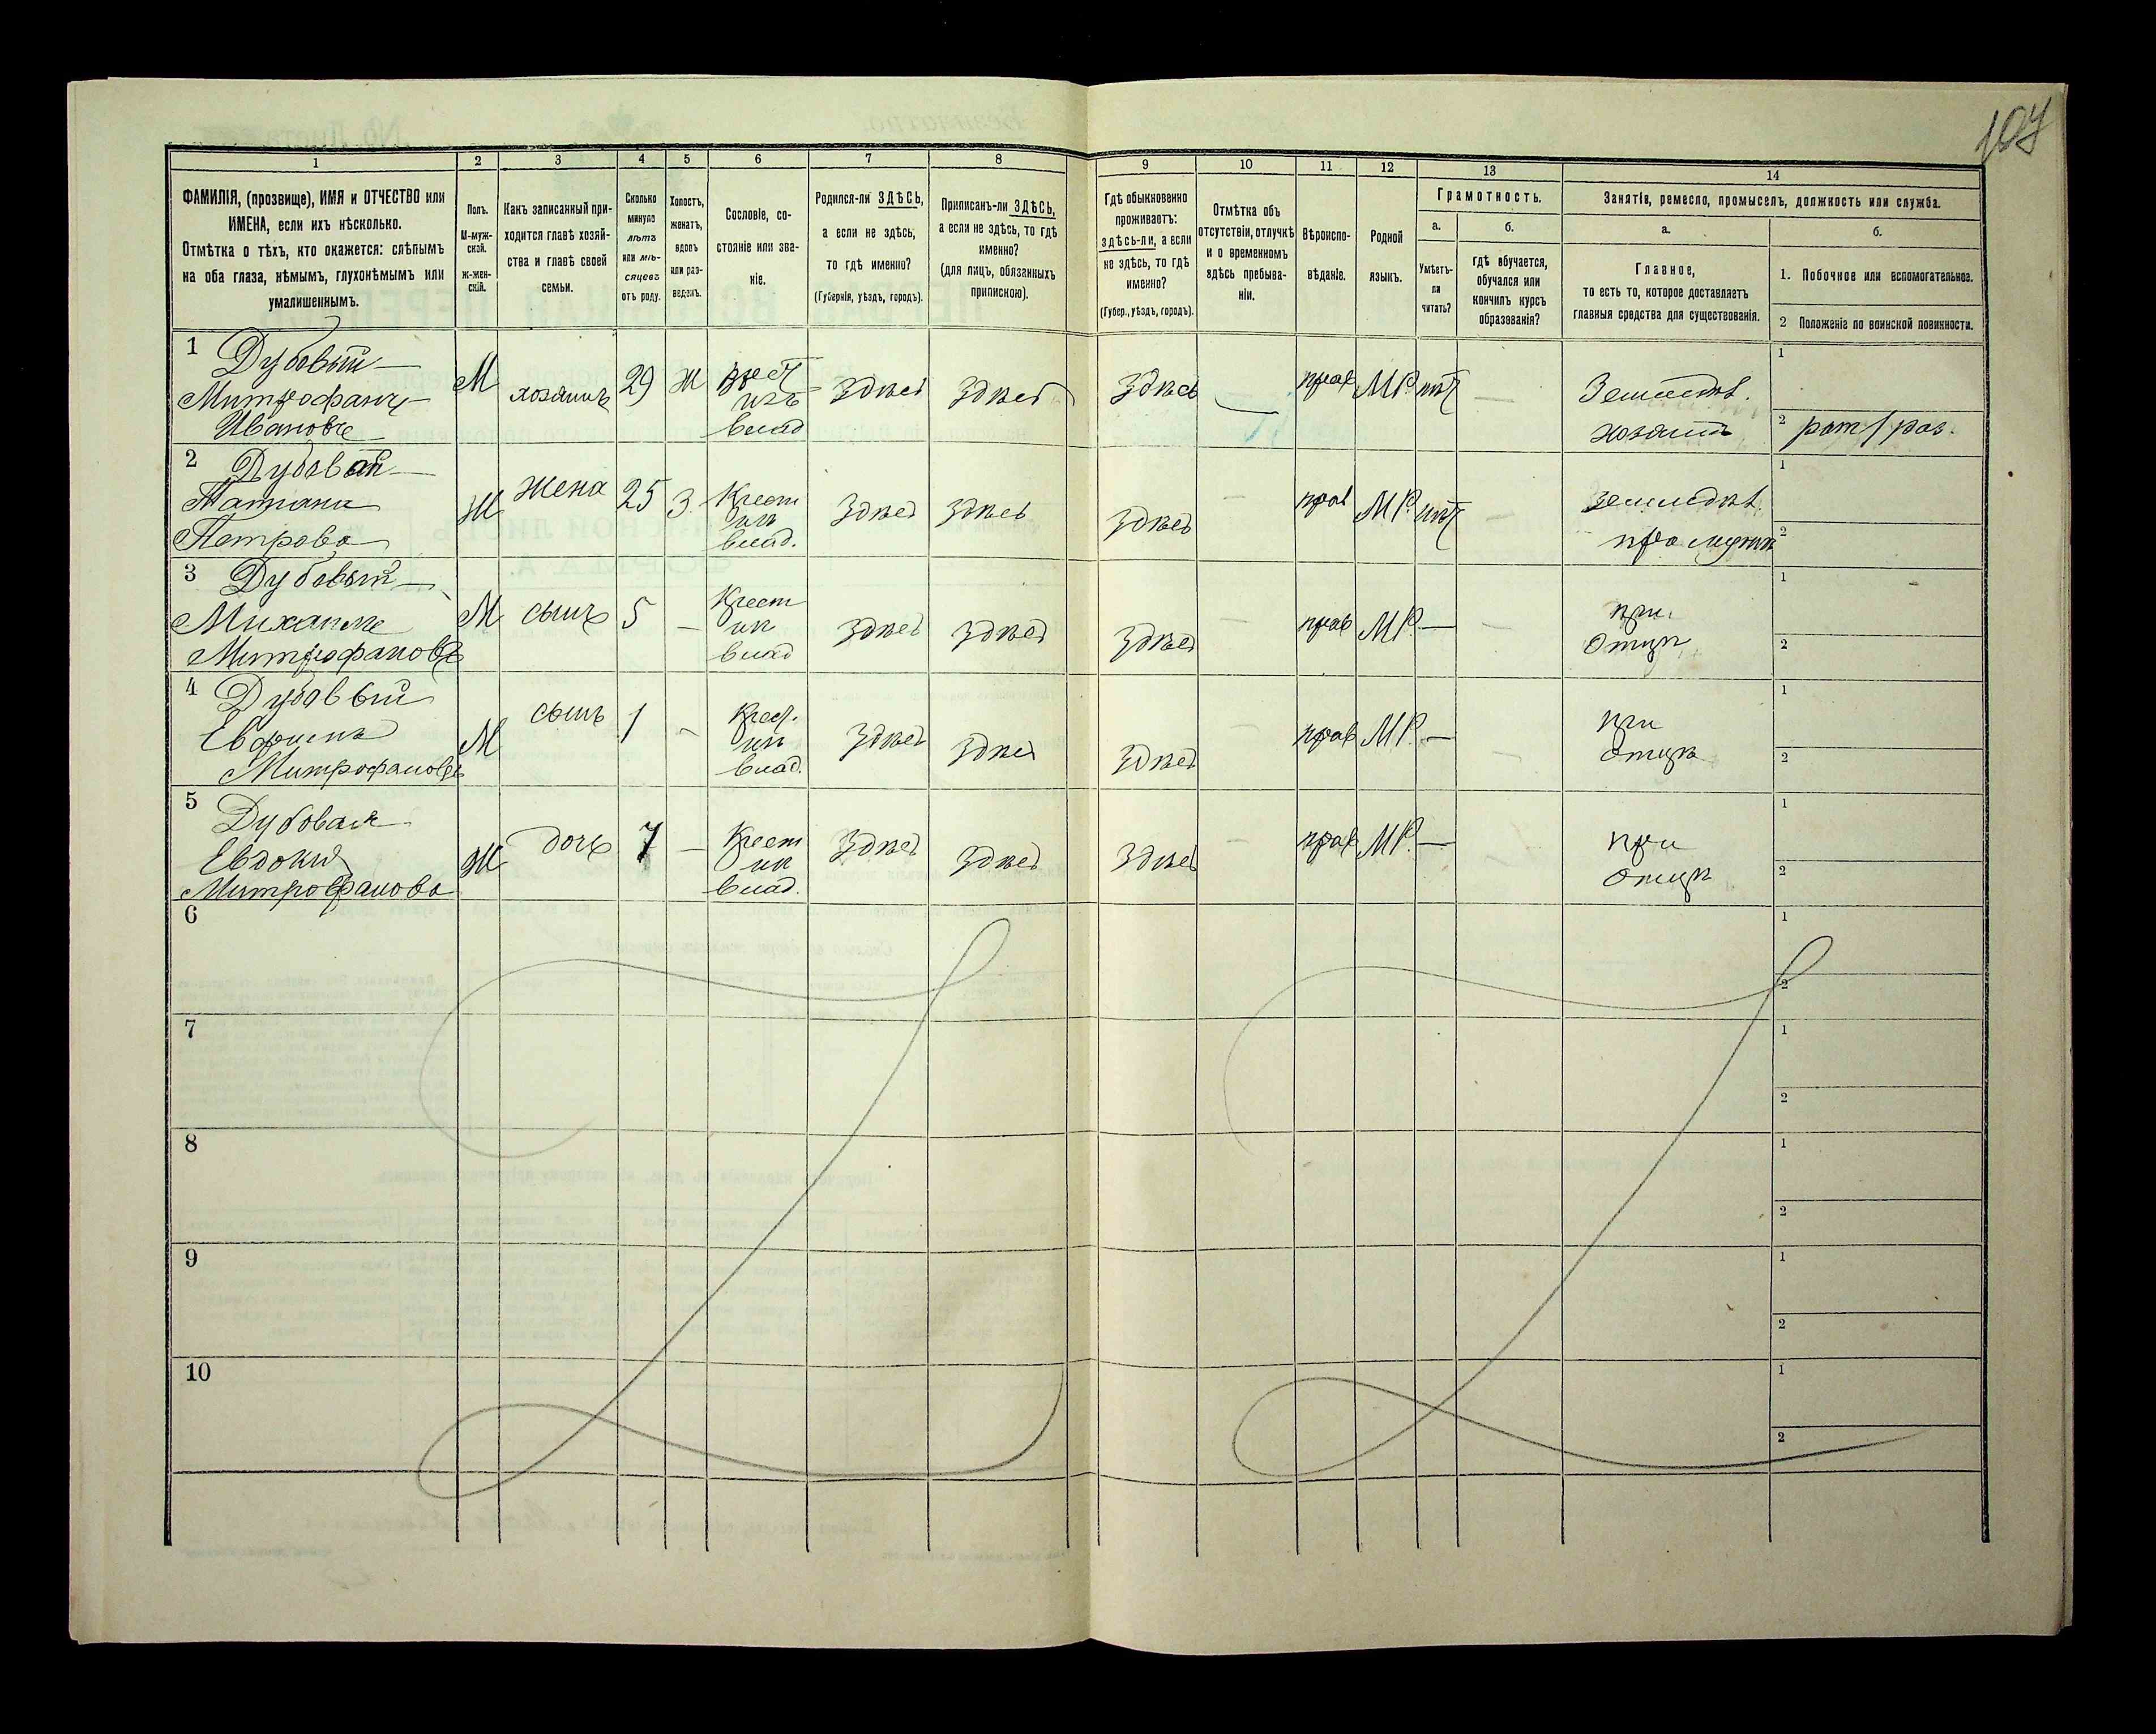 107
1
2
3
4
5
6
7
8
9
10
11
12
13
14
ФАМИЛІЯ, (прозвище), ИМЯ и ОТЧЕСТВО или
ИМЕНА, если ихъ нѣсколько.
Отмѣтка о тѣхъ, кто окажется: слѣпымъ
на оба глаза, нѣмымъ, глухонѣмымъ или
умалишеннымъ.
Полъ.
М-муж-
ской.
ж-жен-
скій.
Какъ записанный при-
ходится главѣ хозяй-
ства и главѣ своей
семьи.
Сколько
минуло
лѣтъ
или мѣ-
сяцевъ
отъ роду.
Холостъ,
женатъ,
вдовъ
или раз-
веденъ.
Сословіе, со-
стояніе или зва-
ніе.
Родился-ли ЗДѢСЬ,
а если не здѣсь,
то гдѣ именно?
(Губернія, уѣздъ, городъ).
Приписанъ-ли ЗДѢСЬ,
а если не здѣсь, то гдѣ
именно?
(для лицъ, обязанныхъ
припискою).
Гдѣ обыкновенно
проживаетъ:
здѣсь-ли, а если
не здѣсь, то гдѣ
именно?
(Губер., уѣздъ, городъ).
Отмѣтка объ
отсутствіи, отлучкѣ
и о временномъ
здѣсь пребыва-
ніи.
Вѣроиспо-
вѣданіе.
Родной
языкъ.
Грамотность.
а.
Умѣетъ-
ли
читать?
б.
гдѣ обучается,
обучался или
кончилъ курсъ
образованія?
Занятія, ремесло, промыселъ, должность или служба.
а.
Главное,
то есть то, которое доставляетъ
главныя средства для существованія.
б.
1. Побочное или вспомогательное.
2 Положеніе по воинской повинности.
1 Дубовый
Митрофанъ
Ивановъ
М
хозяинъ
29
Ж
Крест
изъ
влад
Здѣсь
Здѣсь
Здѣсь
—
прав
МР.
нѣт
—
хозяинъ
1
2
2 Дубовая
Татiана
Петрова
Ж
жена
25
З.
Крест
из
влад.
Здѣсь
Здѣсь
Здѣсь
—
прав
МР.
нѣт
—
земледѣл.
при мужѣ
1
2
3 Дубовый
Михаилъ
Митрофановъ
М
сынъ
5
—
Крест
из
влад
Здѣсь
Здѣсь
Здѣсь
—
прав
МР.
—
—
при
Отцѣ
1
2
4 Дубовый
Митрофановъ
М
сынъ
1
-
Крест.
из
влад.
Здѣсь
Здѣсь
Здѣсь
—
прав
МР.
—
—
при
Отцѣ
1
2
5 Дубовая
Евдокия
Митрофанова
Ж
дочь
7
—
Крест
из
влад.
Здѣсь
Здѣсь
Здѣсь
—
прав
МР.
—
—
при
Отцѣ
1
2
6
1
2
7
1
2
8
1
2
9
1
2
10
1
2